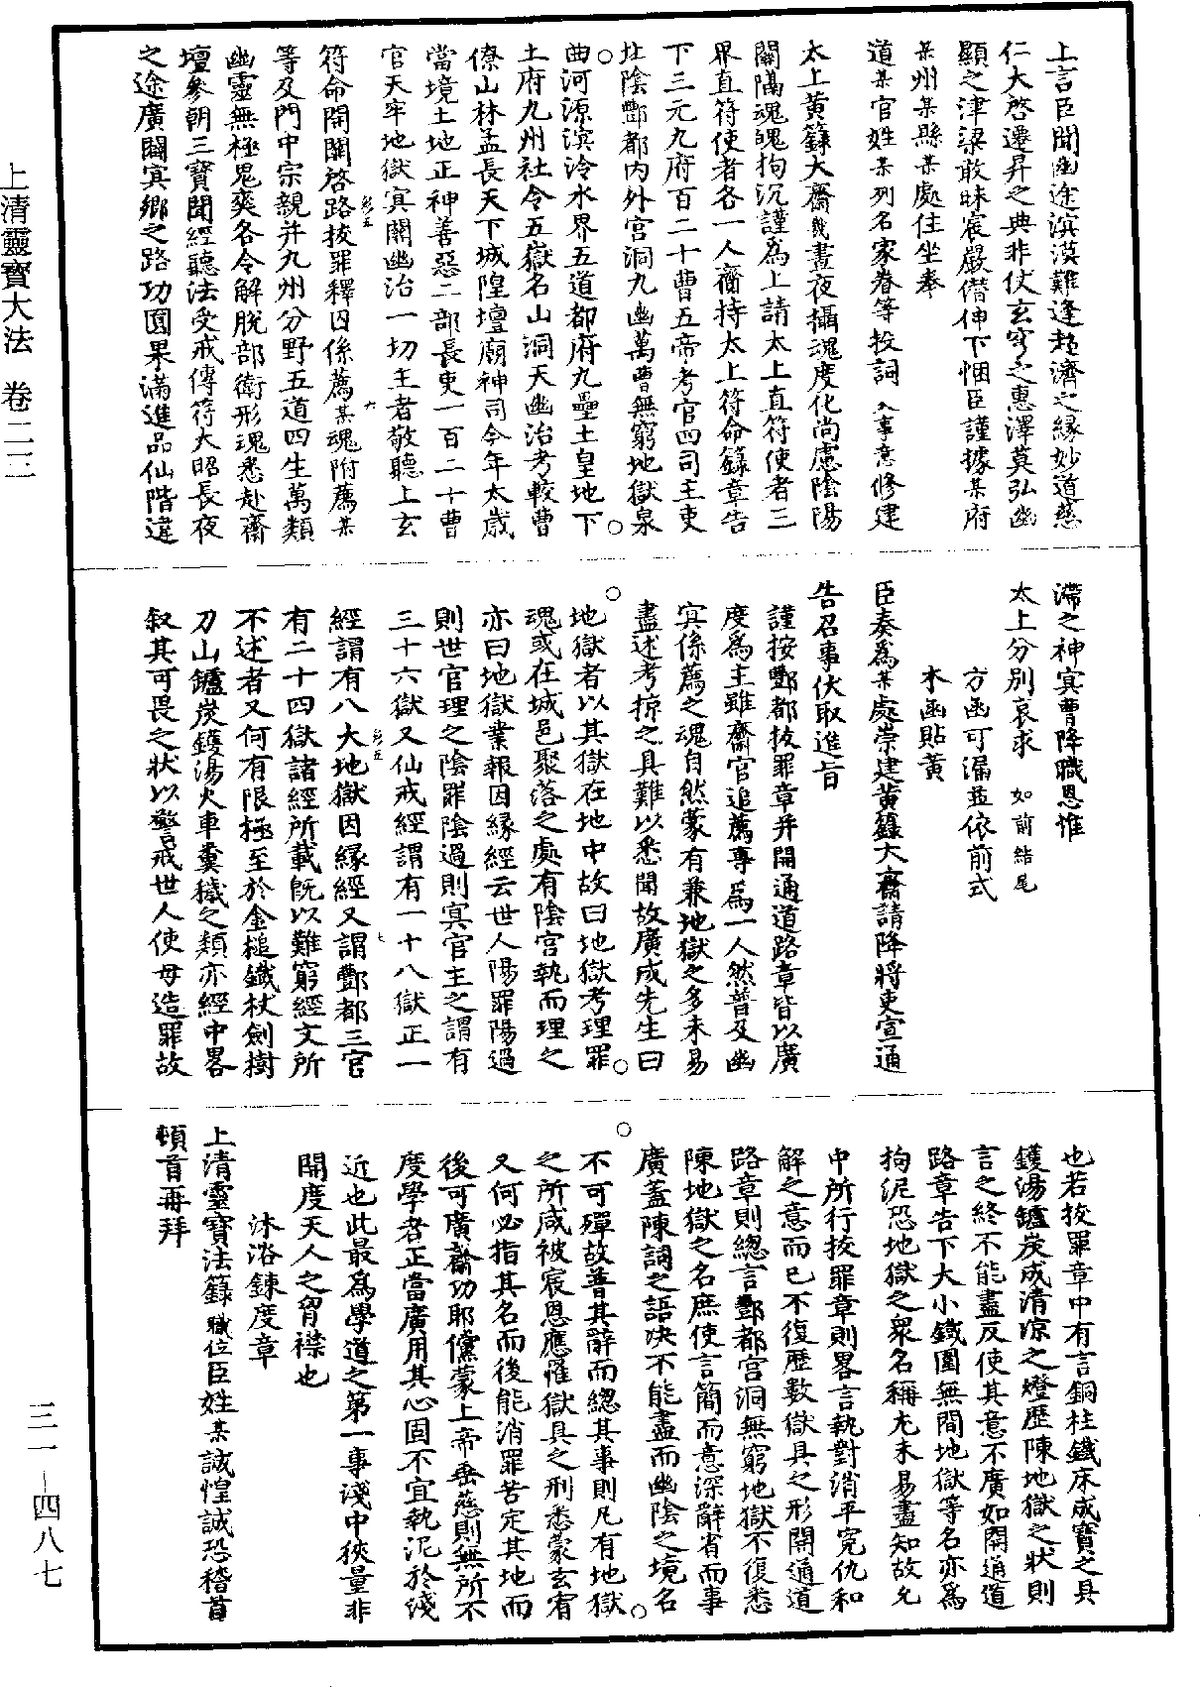 上清靈寶大法　卷二二
上言臣聞幽途溟漠難逢趕濟之緣妙道慈
仁大啓遷昇之典非仗玄穹之惠澤莫弘幽
顯之津梁敢昧宸嚴僭伸下悃臣謹據某府
某州某縣某處住坐奉
道某官姓某列名家眷等投詞入事意修建
太上黃籙大齋幾晝夜攝魂度化尚慮陰陽
關隔魂魄拘沉謹為上請太上直符使者三
界直符使者各一人齎持太上符命籙章告
下三元九府百二十曹五帝考官四司主吏
北陰酆都內外宮洞九幽萬曹無窮地獄泉
曲河源溟泠水界五道都府九壘土皇地下
土府九州社令五嶽名山洞天幽治考較曹
僚山林孟長天下城隍壇廟神司今年太歲
當境土地正神善惡二部長吏一百二十曹
官天牢地獄冥關幽治一切主者敬聽上玄
符命開關啓路拔罪釋囚係薦某魂附薦某
等及門中宗親并九州分野五道四生萬類
幽靈無極鬼爽各令解脫部衛形魂悉赴齋
壇參朝三寶聞經聽法受戒傳符大昭長夜
之途廣闢冥鄉之路功圓果滿進品仙階違
滯之神冥曹降職恩惟
太上分別哀求　如前結尾
方函可漏並依前式
本函貼黃
臣奏為某處崇建黃籙大齋請降將吏宣通
告召事伏取進旨
謹按酆都拔罪章并開通道路章皆以廣
度為主雖齋官追薦專為一人然普及幽
冥係薦之魂自然蒙有兼地獄之多未易
盡述考掠之具難以悉聞故廣成先生曰
地獄者以其獄在地中故曰地獄考理罪
魂或在城邑聚落之處有陰宮執而理之
亦曰地獄業報因緣經云世人陽罪陽過
則世官理之陰罪陰過則冥官主之謂有
三十六獄又仙戒經謂有一十八獄正一
經謂有八大地獄因緣經又謂酆都三官
有二十四獄諸經所載既以難窮經文所
不述者又何有限極至於金槌鐵杖劍樹
刀山鑪炭鑊湯火車糞穢之類亦經中畧
叙其可畏之狀以警戒世人使毋造罪故
也若拔罪章中有言銅柱鐵床成寶之具
鑊湯鑪炭成清凉之燈歷陳地獄之狀則
言之終不能盡反使其意不廣如開通道
路章告下大小鐵圍無間地獄等名亦為
拘泥恐地獄之衆名稱尤未易盡知故允
中所行拔罪章則畧言執對消平寃仇和
解之意而已不復歷數獄具之形開通道
路章則總言酆都宮洞無窮地獄不復悉
陳地獄之名庶使言簡而意深辭省而事
廣蓋陳詞之語决不能盡而幽陰之境名
不可殫故普其辭而總其事則凡有地獄
之所咸被宸恩應罹獄具之刑悉蒙玄宥
又何必指其名而後能消罪苦定其地而
後可廣齋功耶儻蒙上帝垂慈則無所不
度學者正當廣用其心固不宜執泥於淺
近也此最為學道之第一事淺中狹量非
開度天人之胷襟也
沐浴鍊度章
上清靈寶法籙職位臣姓某誠惶誠恐稽首
頓首再拜
三一—四八七